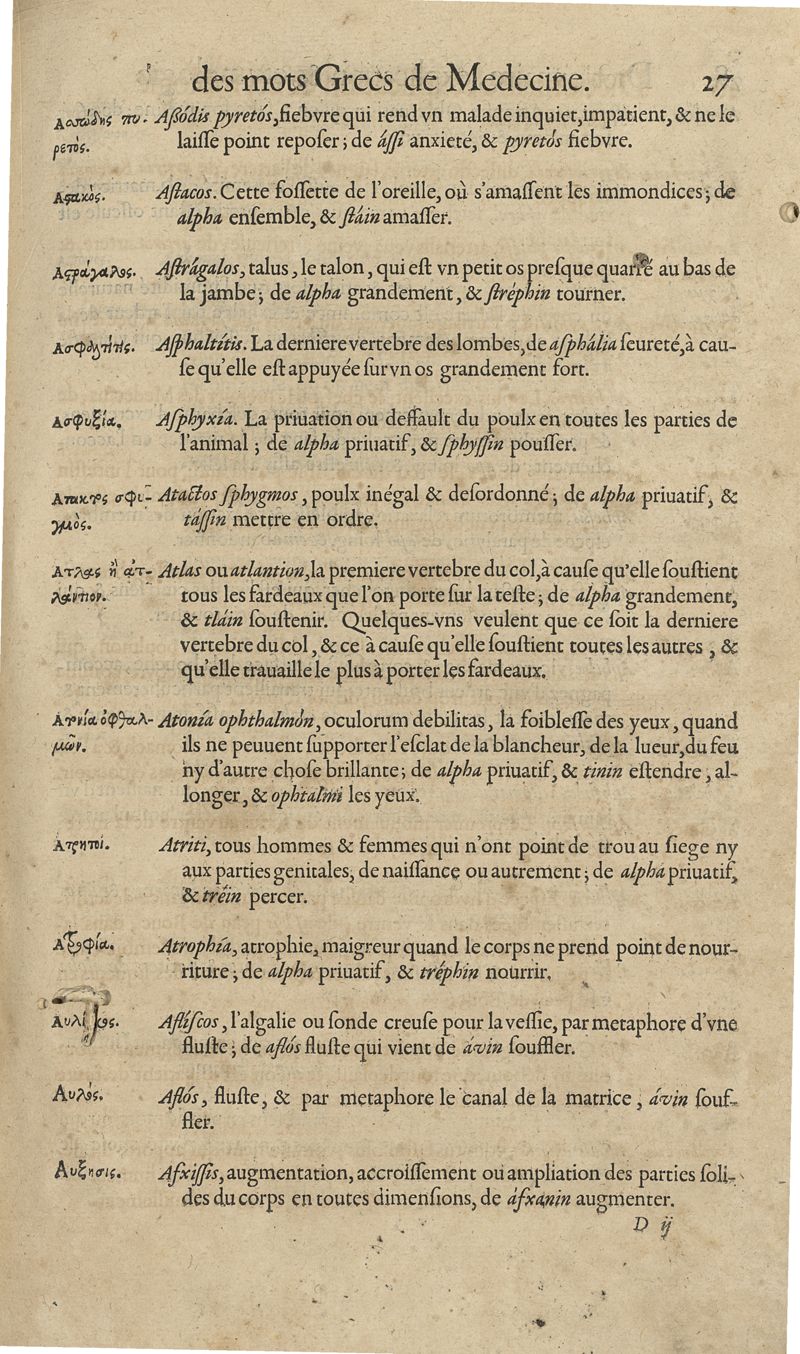 des mots Grecs de Medecine. 27
Ασώδης πυ- Aſſódis pyretós, fiebvre qui rend vn malade inquiet, impatient, & ne le
ρετος. laiſſe point repoſer ; de áſſi anxieté, & pyretós fiebvre.
Αςακὸς. Aſtacos. Cette foſſette de l'oreille, où s'amaſſent les immondices ; de
alpha enſemble, & ſtáin amaſſer.
Αςράγαλος. Aſtrágalos, talus, le talon, qui eſt vn petit os preſque quarré au bas de
la jambe ; de alpha grandement, & ſtréphin tourner.
Ασφαλτίτις. Aſphaltítis. La derniere vertebre des lombes, de aſphália ſeureté, à cau-
ſe qu'elle eſt appuyée ſur vn os grandement fort.
Ασφυξία. Aſphyxía. La priuation ou deffault du poulx en toutes les parties de
l'animal ; de alpha priuatif, & ſphyſſin pouſſer.
Ατακτος σφυ- Atactos ſphygmos, poulx inégal & deſordonné ; de alpha priuatif, &
γμὸς. táſſin mettre en ordre.
Ατλας ἢ ατ- Atlas ou atlantion, la premiere vertebre du col, à cauſe qu'elle ſouſtient
λάντιον. tous les fardeaux que l'on porte ſur la teſte ; de alpha grandement,
& tláin ſouſtenir. Quelques-vns veulent que ce ſoit la derniere
vertebre du col, & ce à cauſe qu'elle ſouſtient toutes les autres, &
qu'elle trauaille le plus à porter les fardeaux.
Ατονία ὀφθαλ- Atonía ophthalmón, oculorum debilitas, la foibleſſe des yeux, quand
μῶν. ils ne peuuent ſupporter l'eſclat de la blancheur, de la lueur, du feu
ny d'autre choſe brillante ; de alpha priuatif, & tinin eſtendre, al-
longer, & ophtalmi les yeux.
Ατρητοί. Atriti, tous hommes & femmes qui n'ont point de trou au ſiege ny
aux parties genitales, de naiſſance ou autrement ; de alpha priuatif,
& tréin percer.
Ατροφία. Atrophía, atrophie, maigreur quand le corps ne prend point de nour-
riture ; de alpha priuatif, & tréphin nourrir.
Αυλίσκος. Aflíſcos, l'algalie ou ſonde creuſe pour la veſſie, par metaphore d'vne
fluſte ; de aflós fluſte qui vient de ávin ſouffler.
Αυλὸς. Aflós, fluſte, & par metaphore le canal de la matrice, ávin ſouf-
fler.
Αυξησις. Afxiſſis, augmentation, accroiſſement ou ampliation des parties ſoli-
des du corps en toutes dimenſions, de áfxanin augmenter.
D ij